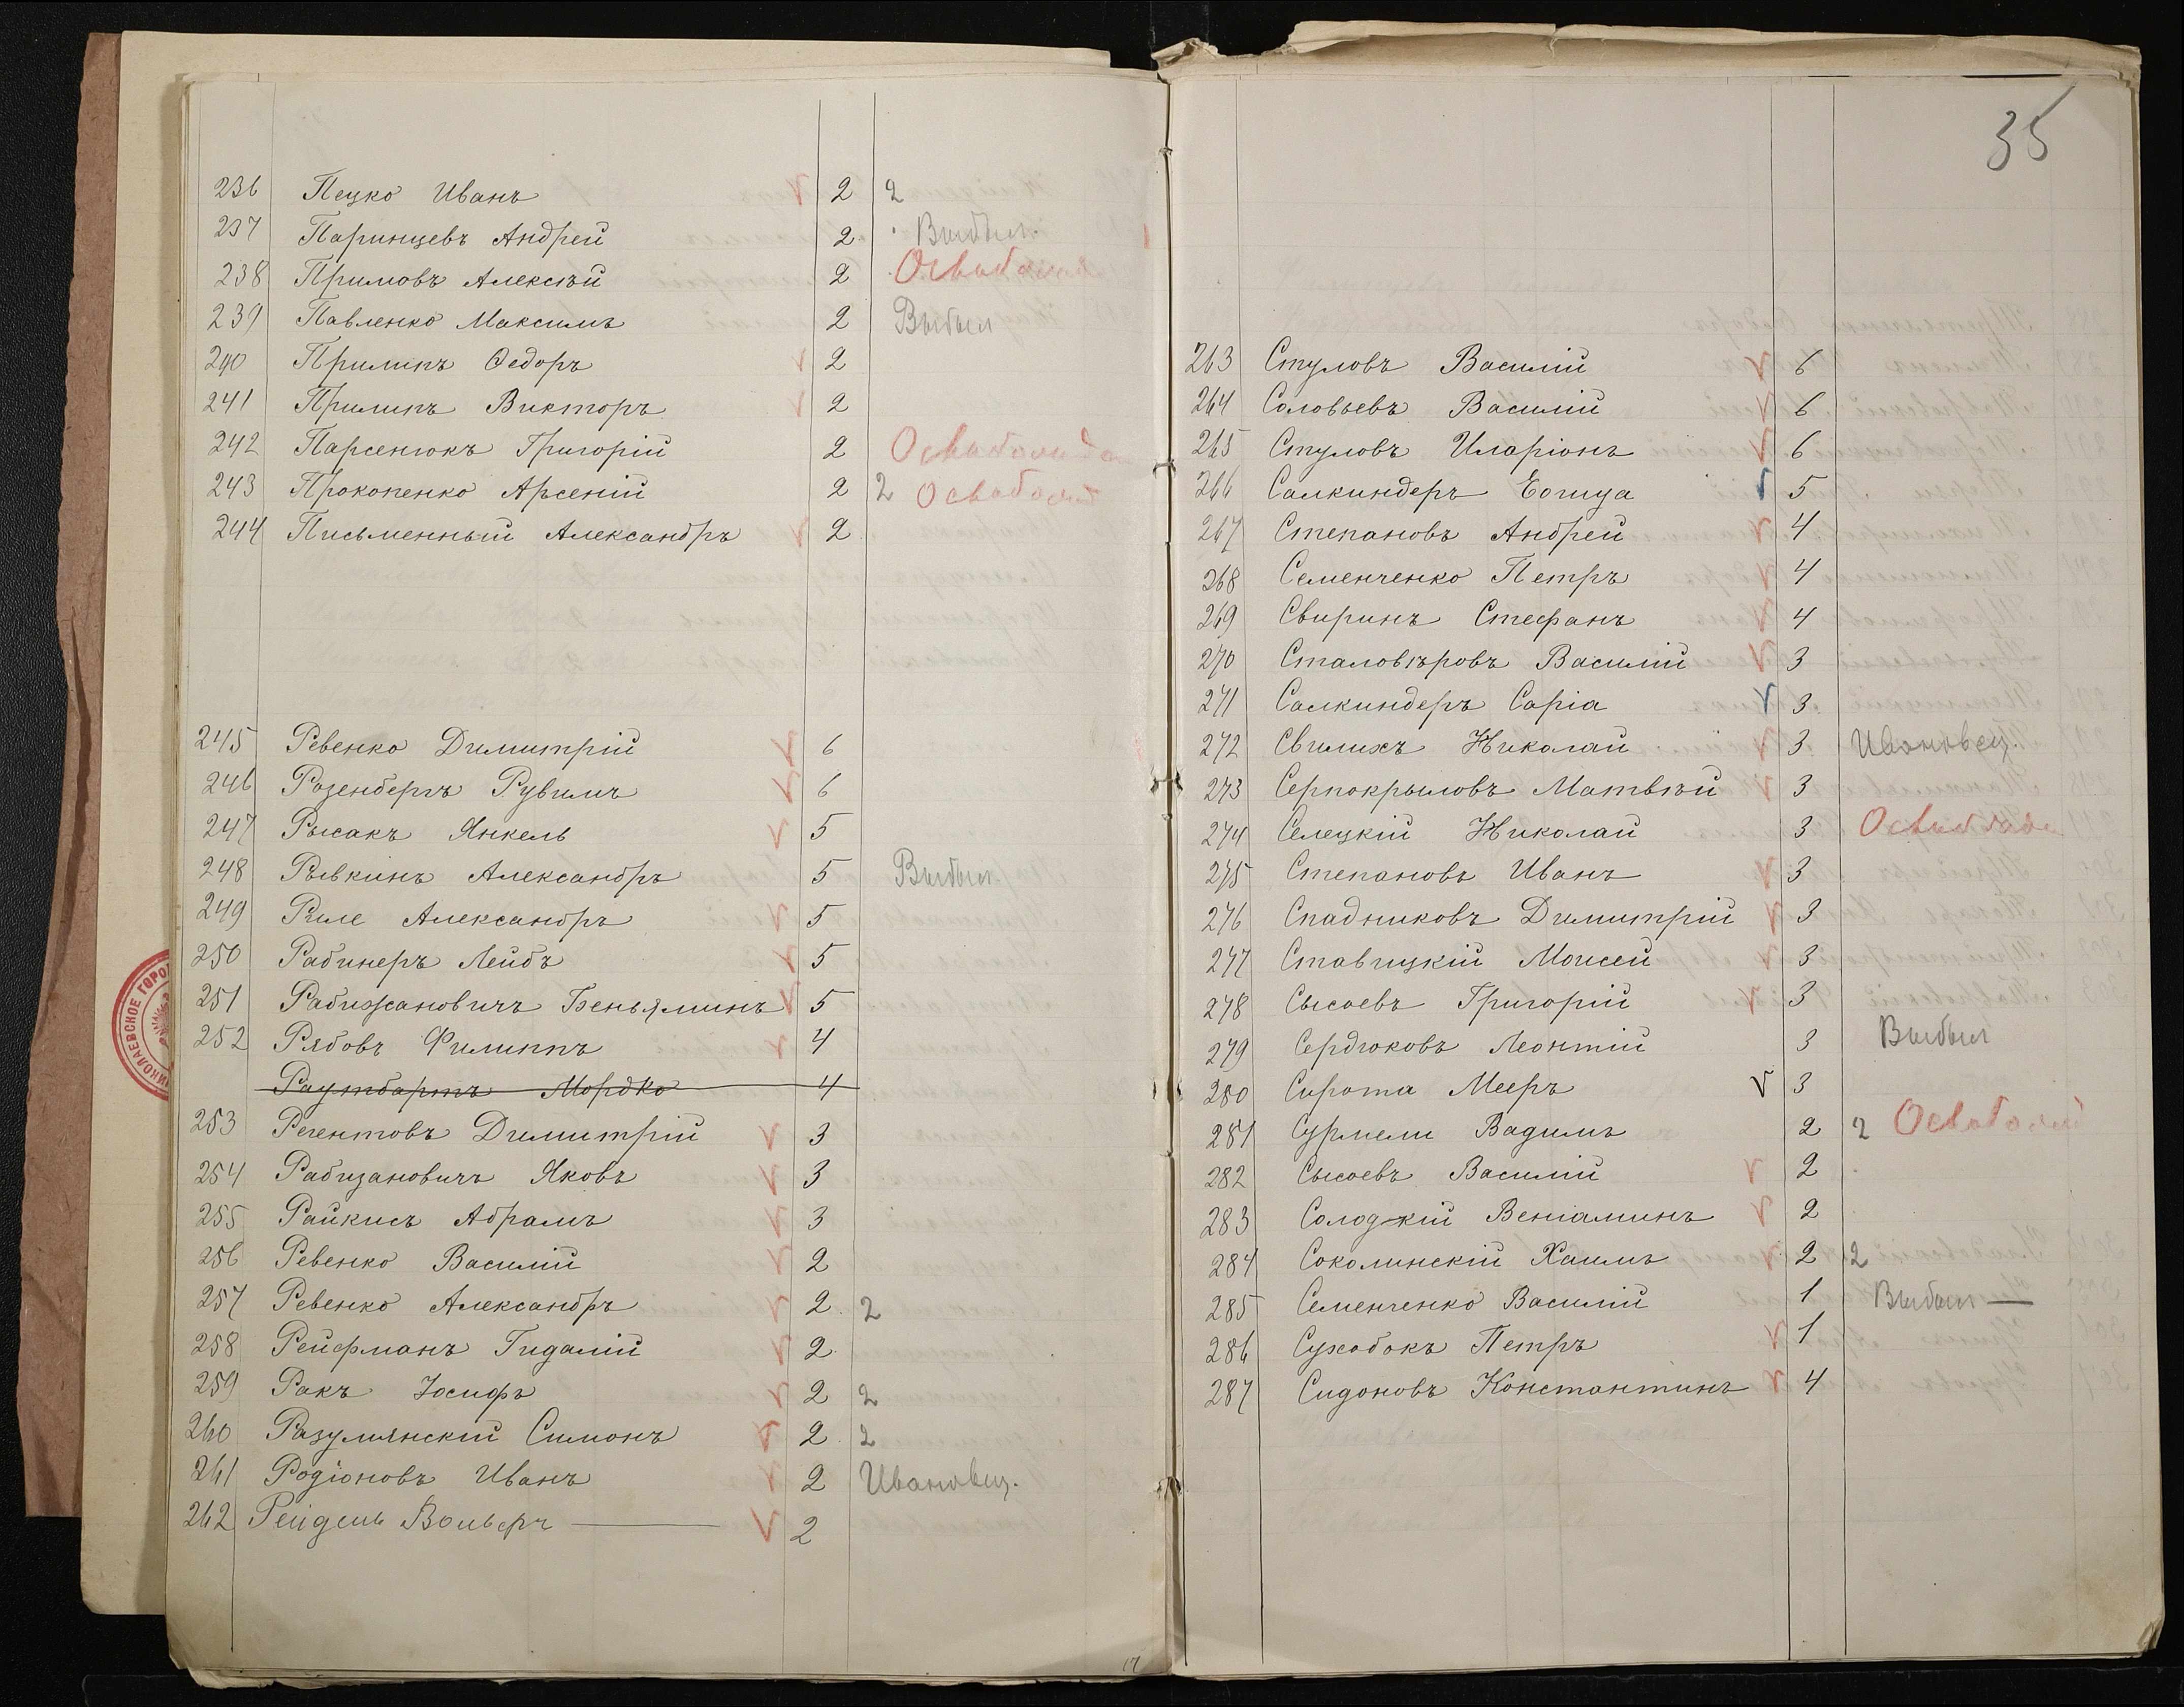 236 Пецко Иванъ √ 2 2
237 Паринцевъ Андрей 2 Выбылъ
238 Примовъ Алексѣй 2
239 Павленко Максимъ 2 Выбыл
240 Прилипъ Ѳедоръ √ 2
241 Прилипъ Викторъ √ 2
242 Парсенюкъ Григорій 2
243 Прокопенко Арсеній 2 2
244 Письменный Александръ √ 2
245 Ревенко Димитрій √ 6
246 Розенбергъ Рувимъ √ 6
247 Рысакъ Янкель √ 5
248 Рывкинъ Александръ 5 Выбыл
249 Риле Александръ √ 5
250 Рабинеръ Лейбъ √ 5
251 Рабижановичъ Беньяминъ √ 5
252 Рябовъ Филиппъ √ 4
Раутбартъ Мордко 4
253 Регентовъ Димитрій √ 3
254 Рабизановичъ Яковъ √ 3
255 Райкисъ Абрамъ √ 3
256 Ревенко Василій √ 2
257 Ревенко Александръ √ 2 2
258 Рейфманъ Гидалій √ 2
259 Ракъ Іосифъ √ 2 2
260 Разумянскій Симонъ √ 2 2
261 Родіоновъ Иванъ √ 2 Ивановец.
262 Рейдель Вольфъ √ 2
НИКОЛАЕВСКОЕ ГОРО
17
35
263 Стуловъ Василій √ 6
264 Соловьевъ Василій √ 6
265 Стуловъ Иларіонъ √ 6
266 Салкиндеръ √ 5
267 Степановъ Андрей √ 4
268 Семенченко Петръ √ 4
269 Свиринъ Стефанъ √ 4
270 Сталовѣровъ Василій √ 3
271 Салкиндеръ Саріа √ 3
272 Свилихъ Николай √ 3 Ивановец.
273 Серпокрыловъ Матвѣй √ 3
274 Селецкій Николай 3
275 Степановъ Иванъ √ 3
276 Спадниковъ Димитрій √ 3
277 Ставицкій Моисей √ 3
278 Сысоевъ Григорій √ 3
279 Сердюковъ Леонтій 3 Выбыл
280 Сирота Мееръ √ 3
281 Сурмели Вадимъ 2 2
282 Сысоевъ Василій √ 2
283 Солодкій Веніаминъ √ 2
284 Соколинскій Хаимъ √ 2 2
285 Семенченко Василій 1 Выбыл —
286 Сухобокъ Петръ √ 1
287 Сидоновъ Константинъ √ 4